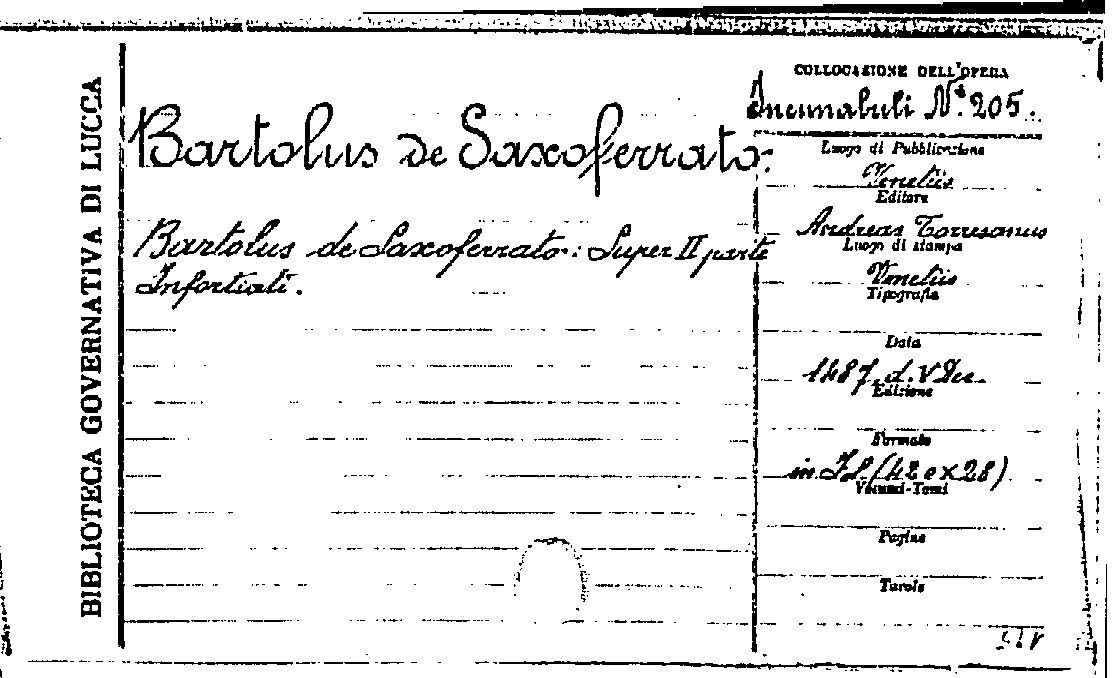 BIBLIOTECA GOVERNATIVA DI LUCCA
Bartolus de Saxoferrato.
Bartolus de Saxoferrato: Super II parte
Infortiati.
COLLOCAZIONE DELL'OPERA
Incunabuli N.º 205.
Luogo di Pubblicazione
Venetiis
Editore
Andreas Torresanus
Luogo di stampa
Venetiis
Tipografia
Data
1487. d. V
Edizione
Formato
in (42 x 28)
Volumi-Tomi
Pagine
Tavole